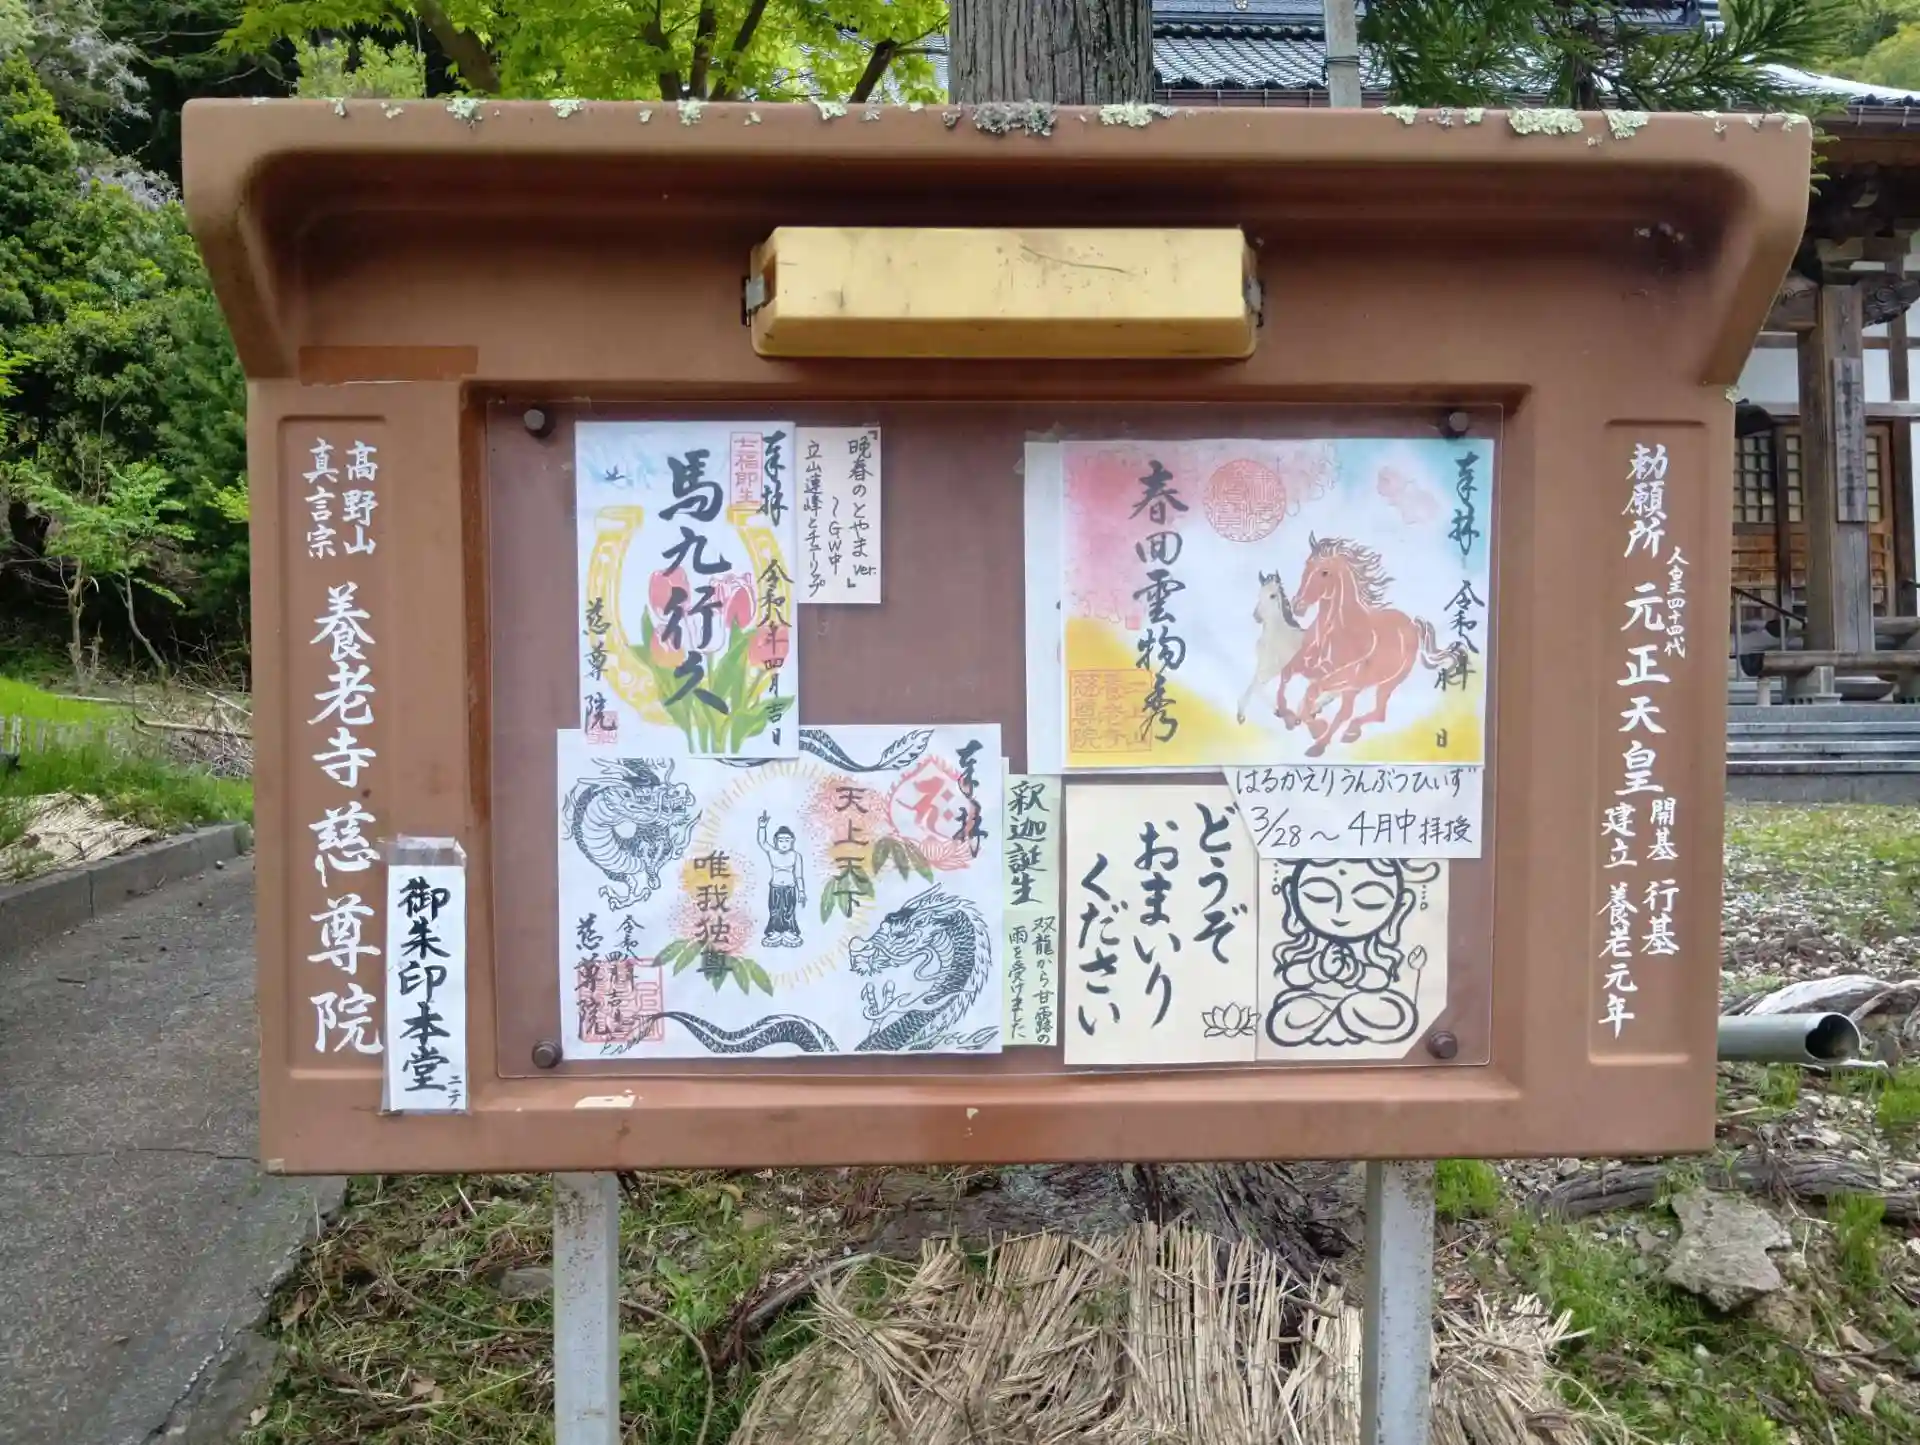 勅願所 人皇四十四代 元正天皇
開基 行基
建立 養老元年
奉拝
令和八年 月 日
春回雲物秀
養老寺
慈尊院
はるかえりうんぶつひいず
3/28～4月中拝授
どうぞ
おまいり
ください
『晩春のとやまver.』
～GW中
立山連峰とチューリップ
奉拝
七福即生
令和八年四月吉日
馬九行久
慈尊院
釈迦誕生
双龍から甘露の
雨を受けました
奉拝
天上天下
唯我独尊
令和八年四月吉日
慈尊院
高野山
真言宗
養老寺 慈尊院
御朱印本堂
ニテ